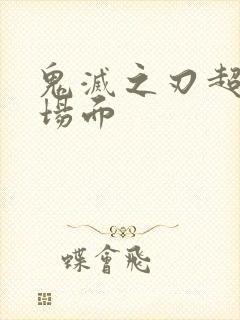 鬼滅之刃超
場而
蝶會飛